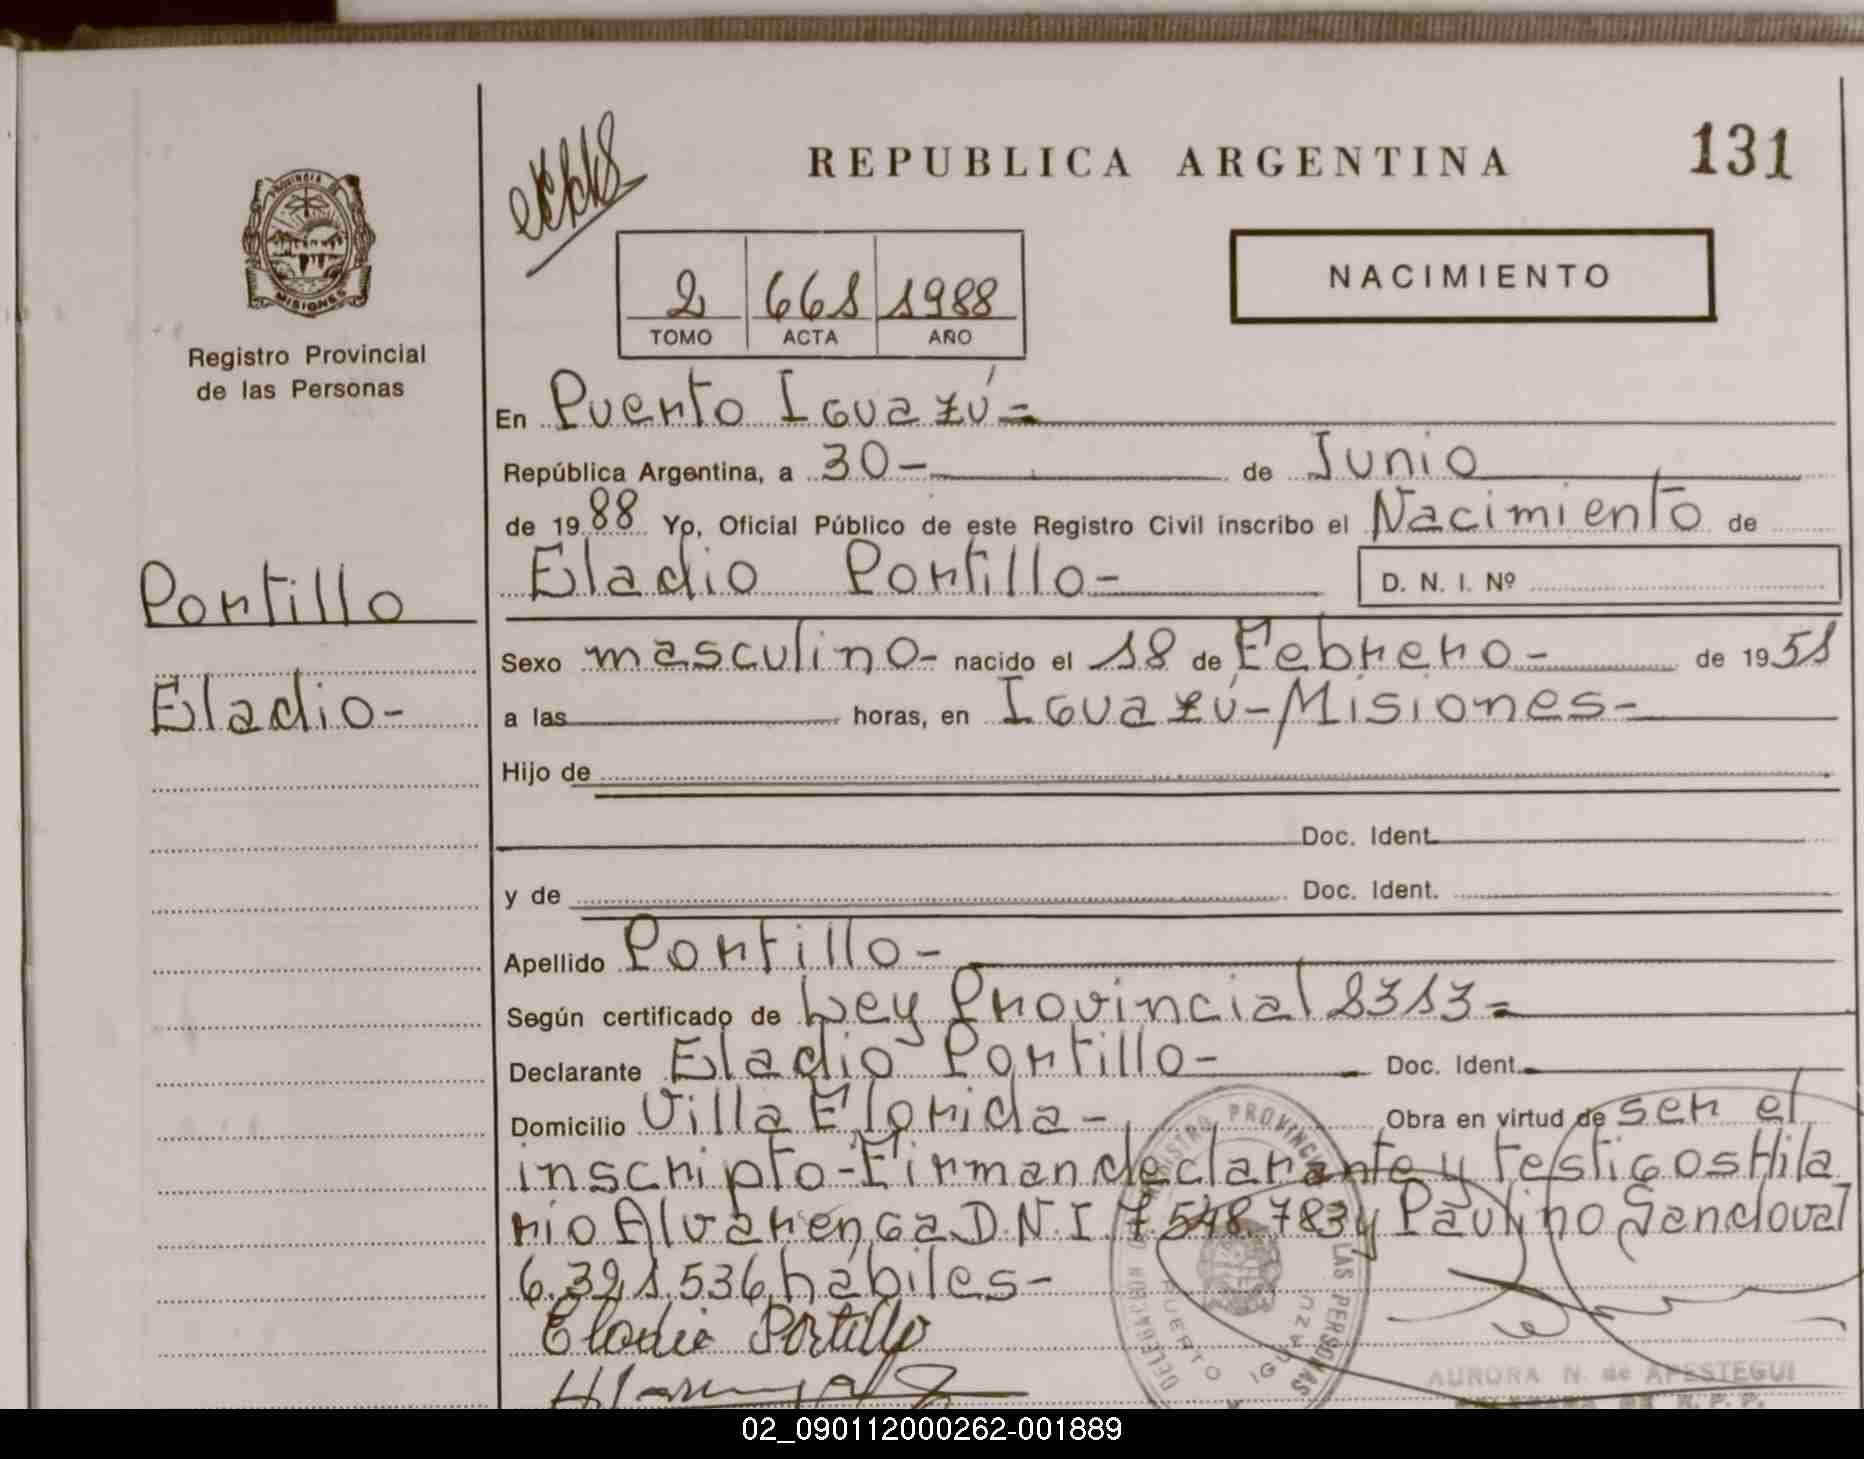 REPUBLICA ARGENTINA
131
PROVINCIA DE
MISIONES
Registro Provincial
de las Personas
NACIMIENTO
2 661 1988
TOMO ACTA AÑO
En Puerto Iguazú=
República Argentina, a 30- de Junio
de 1988 Yo, Oficial Público de este Registro Civil inscribo el Nacimiento de
Eladio Portillo-
D. N. I. Nº
Portillo
Eladio-
Sexo masculino- nacido el 18 de Febrero- de 1951
a las horas, en Iguazú-Misiones-
Hijo de
Doc. Ident.
y de Doc. Ident.
Apellido Portillo-
Según certificado de Ley Provincial 2313=
Declarante Eladio Portillo- Doc. Ident.
Domicilio Villa Florida- Obra en virtud de ser el
inscripto-Firman declarante y testigos Hila
rio Alvarenga D.N.I. 7.548.783 y Paulino Sandoval
6.321.536 hábiles-
Eladio Portillo
REGISTRO PROVINCIAL DE LAS PERSONAS
PUERTO IGUAZU
AURORA N. de APESTEGUI
02_090112000262-001889